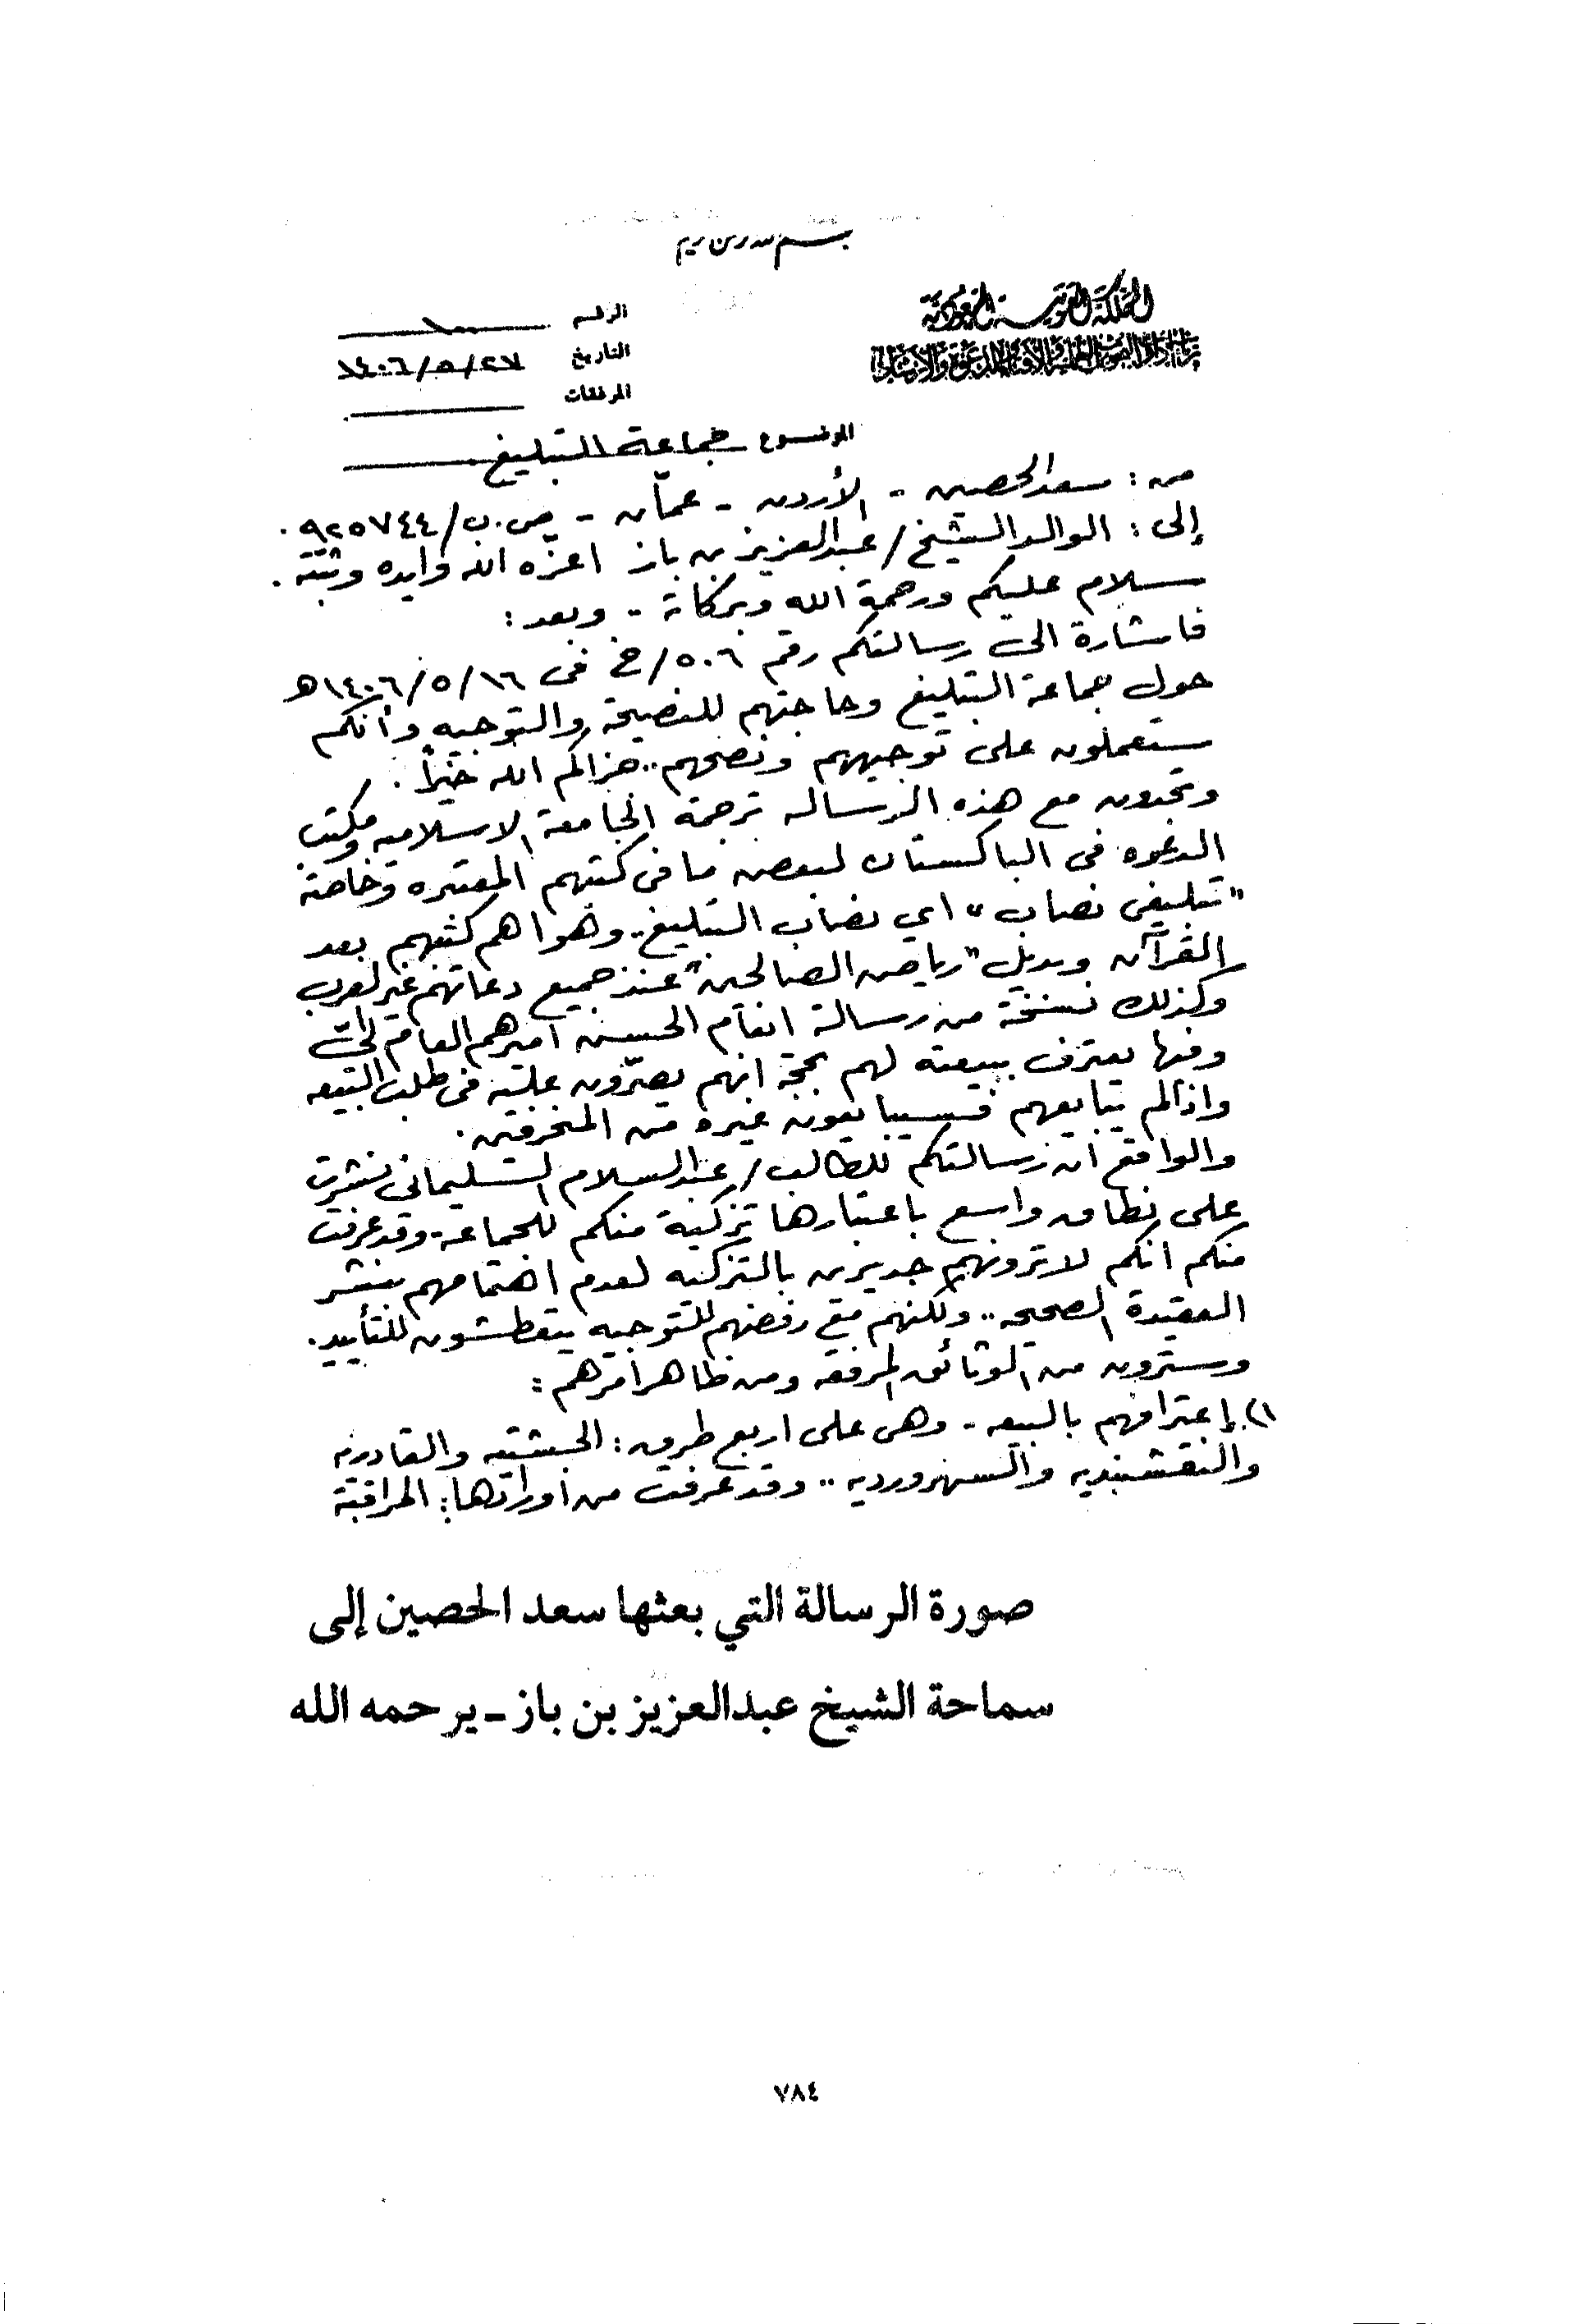 بسم الله الرحمن الرحيم
المملكة العربية السعودية
رئاسة إدارات البحوث العلمية والافتاء والدعوة والارشاد
الرقم
التاريخ ١٤٠٦/٥/٢٧
المرفقات
الموضوع جماعة التبليغ
من : سعد الحصين - الأردن - عمّان - ص.ب/ ٩٢٥٧٤٤ .
إلى : الوالد الشيخ / عبدالعزيز بن باز اعزّه الله وايده وثبّته .
سلام عليكم ورحمة الله وبركاته .. وبعد :
فاشارة الى رسالتكم رقم ٥٠٦/خ فى ١٤٠٦/٥/١٦هـ
حول جماعة التبليغ وحاجتهم للنصيحة والتوجيه وأنكم
ستعملون على توجيههم ونصحهم .. جزاكم الله خيراً .
وتجدون مع هذه الرساله ترجمة الجامعة الاسلاميه ومكتب
الدعوه فى الباكستان لبعض ما فى كتبهم المعتبره وخاصة
"تبليغى نصاب" اي نصاب التبليغ .. وهو اهم كتبهم بعد
القرآن وبديل "رياض الصالحين" عند جميع دعاتهم غير العرب
وكذلك نسخة من رسالة انعام الحسن اميرهم العام إليّ
وفيها يعترف ببيعته لهم بحجة انهم يصرّون عليه فى طلب البيعه
واذا لم يبايعهم فسيبايعون غيره من المنحرفين .
والواقع ان رسالتكم للطالب / عبدالسلام السليمانى نشرت
على نطاق واسع باعتبارها تزكية منكم للجماعة . وقد عرفت
منكم انكم لا ترونهم جديرين بالتزكيه لعدم اهتمامهم بنشر
العقيدة الصحيحه .. ولكنهم مع رفضهم للتوجيه يتعطشون للتأييد .
وسترون من الوثائق المرفقه ومن ظاهر امرهم :
١) إعترافهم بالبيعه - وهى على اربع طرق : الجشتيه والقادريه
والنقشبنديه والسهرورديه .. وقد عرفت من اورادها : المراقبة
صورة الرسالة التي بعثها سعد الحصين إلى
سماحة الشيخ عبدالعزيز بن باز ـ يرحمه الله
٧٨٤